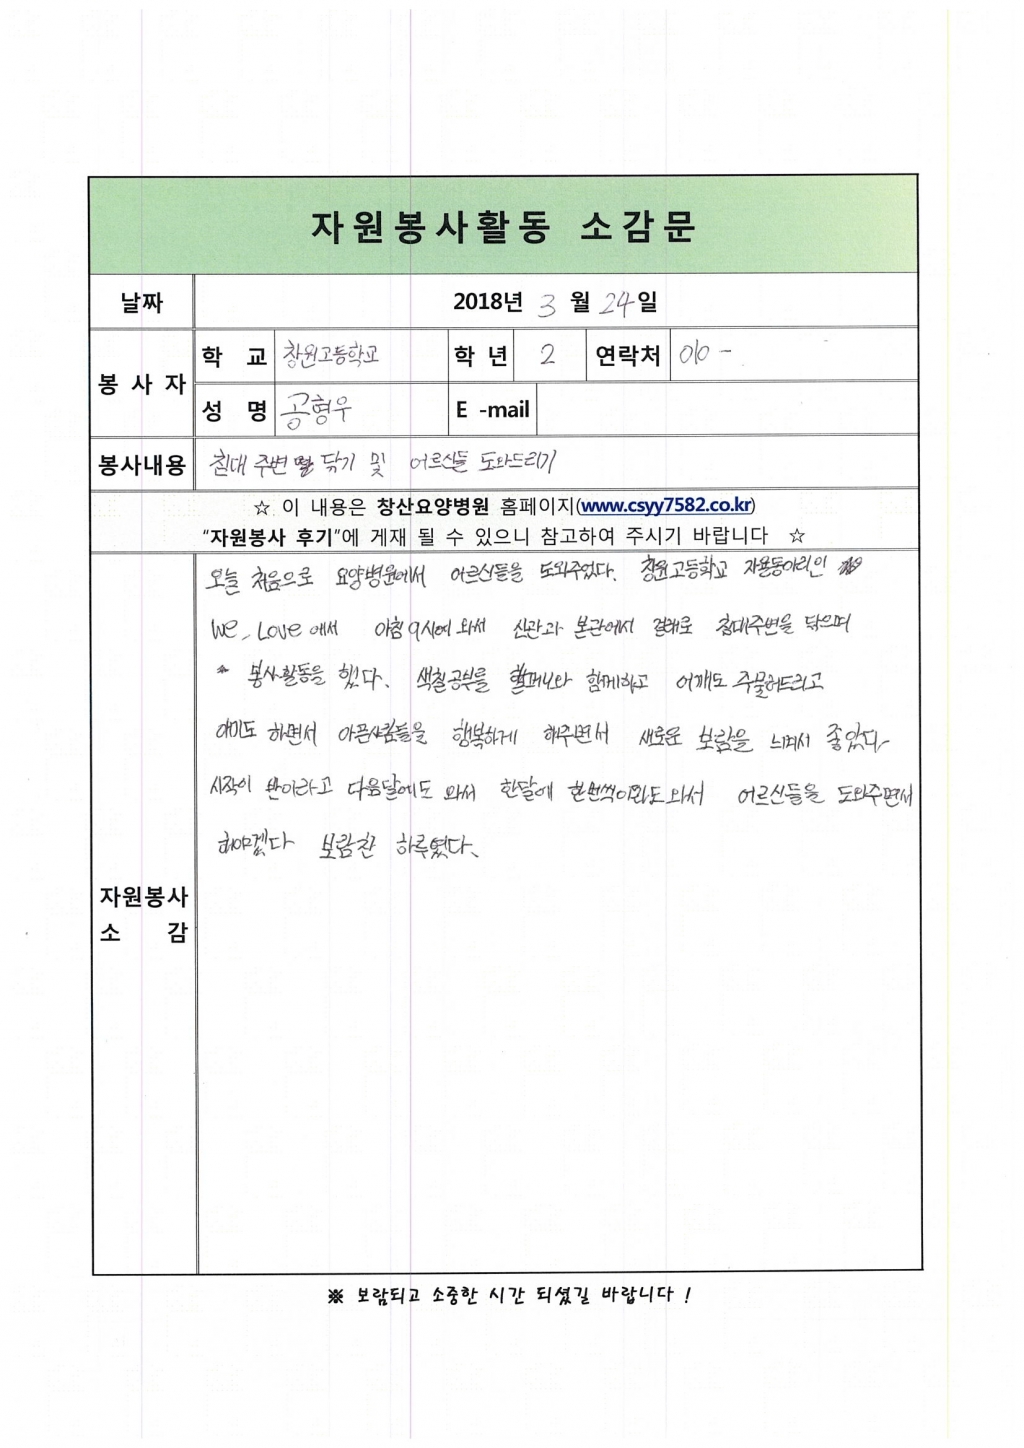 자원봉사활동 소감문
날짜 2018년 3월 24일
봉사자 학교 창원고등학교 학년 2 연락처 010 -
성명 공형우 E -mail
봉사내용 침대 주변 닦기 및 어르신들 도와드리기
☆ 이 내용은 창산요양병원 홈페이지(www.csyy7582.co.kr)
"자원봉사 후기"에 게재 될 수 있으니 참고하여 주시기 바랍니다 ☆
자원봉사 소감
오늘 처음으로 요양병원에서 어르신들을 도와주었다. 창원고등학교 자율동아리인
We, Love 에서 아침 9시에 와서 신관과 본관에서 걸레로 침대주변을 닦으며
봉사활동을 했다. 색칠공부를 할머니와 함께하고 어깨도 주물러드리고
얘기도 하면서 아픈사람들을 행복하게 해주면서 새로운 보람을 느껴서 좋았다.
시작이 반이라고 다음달에도 와서 한달에 한번씩이라도 와서 어르신들을 도와주면서
해야겠다 보람찬 하루였다.
※ 보람되고 소중한 시간 되셨길 바랍니다 !